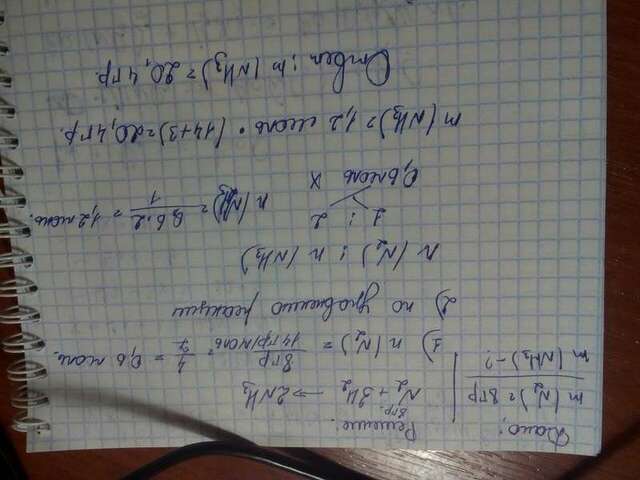 Дано:
m(N₂) = 8гр
m(NH₃) - ?
Решение:
8гр.
N₂ + 3H₂ → 2NH₃
1) n(N₂) = 8гр / 14гр/моль = 4/7 = 0,6 моль.
2) по уравнению реакции
n(N₂) : n(NH₃)
1 : 2
0,6моль x
n(NH₃) = 0,6·2 / 1 = 1,2 моль.
m(NH₃) = 1,2 моль · (14+3) = 20,4гр.
Ответ: m(NH₃) = 20,4гр.